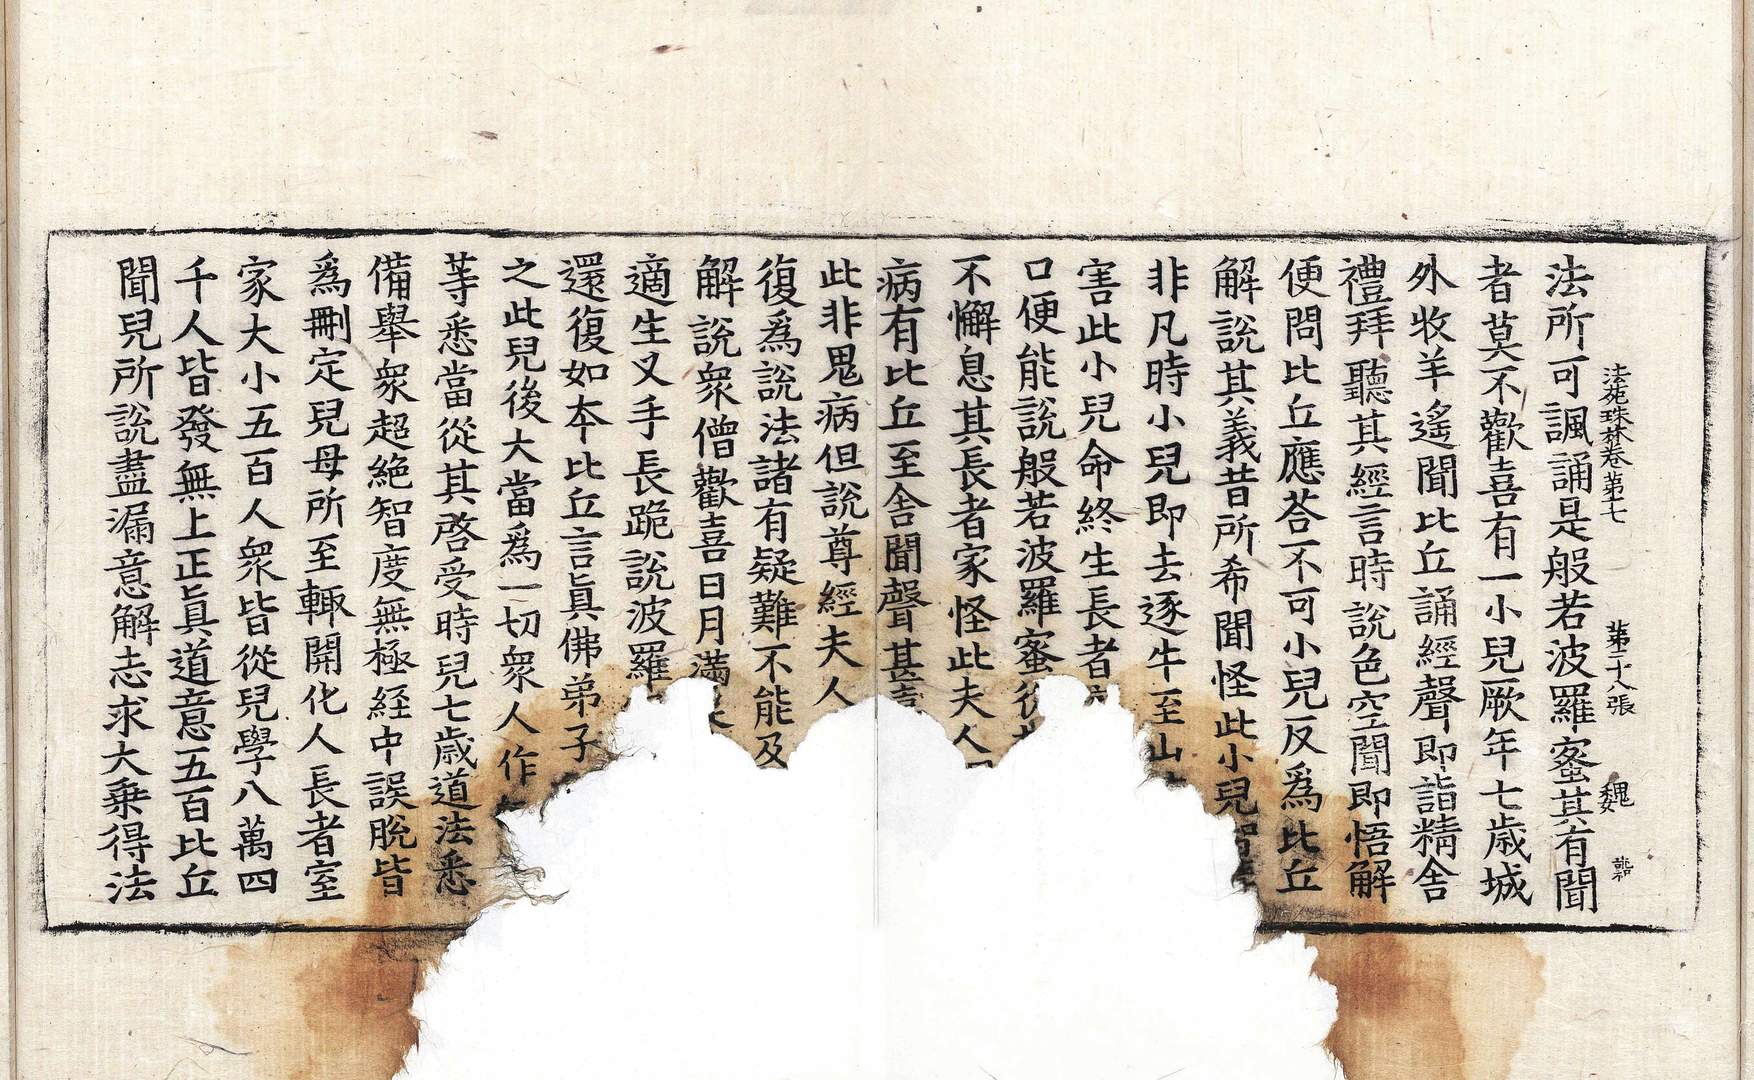 法苑珠林卷第七 第二十八張 魏
法所可諷誦是般若波羅蜜其有聞
者莫不歡喜有一小兒厥年七歲城
外牧羊遙聞比丘誦經聲即詣精舍
禮拜聽其經言時說色空聞即悟解
便問比丘應荅不可小兒反爲比丘
解說其義昔所希聞怪此小兒智
非凡時小兒即去逐牛至山
害此小兒命終生長者
口便能說般若波羅蜜從
不懈息其長者家怪此夫人
病有比丘至舍聞聲甚喜
此非鬼病但說尊經夫人
復爲說法諸有疑難不能及
解說衆僧歡喜日月滿
適生叉手長跪說波羅
還復如本比丘言眞佛弟子
之此兒後大當爲一切衆人作
等悉當從其啓受時兒七歲道法悉
備舉衆超絕智度無極経中誤脫皆
爲刪定兒母所至輙開化人長者室
家大小五百人衆皆從兒學八萬四
千人皆發無上正眞道意五百比丘
聞兒所說盡漏意解志求大乗得法